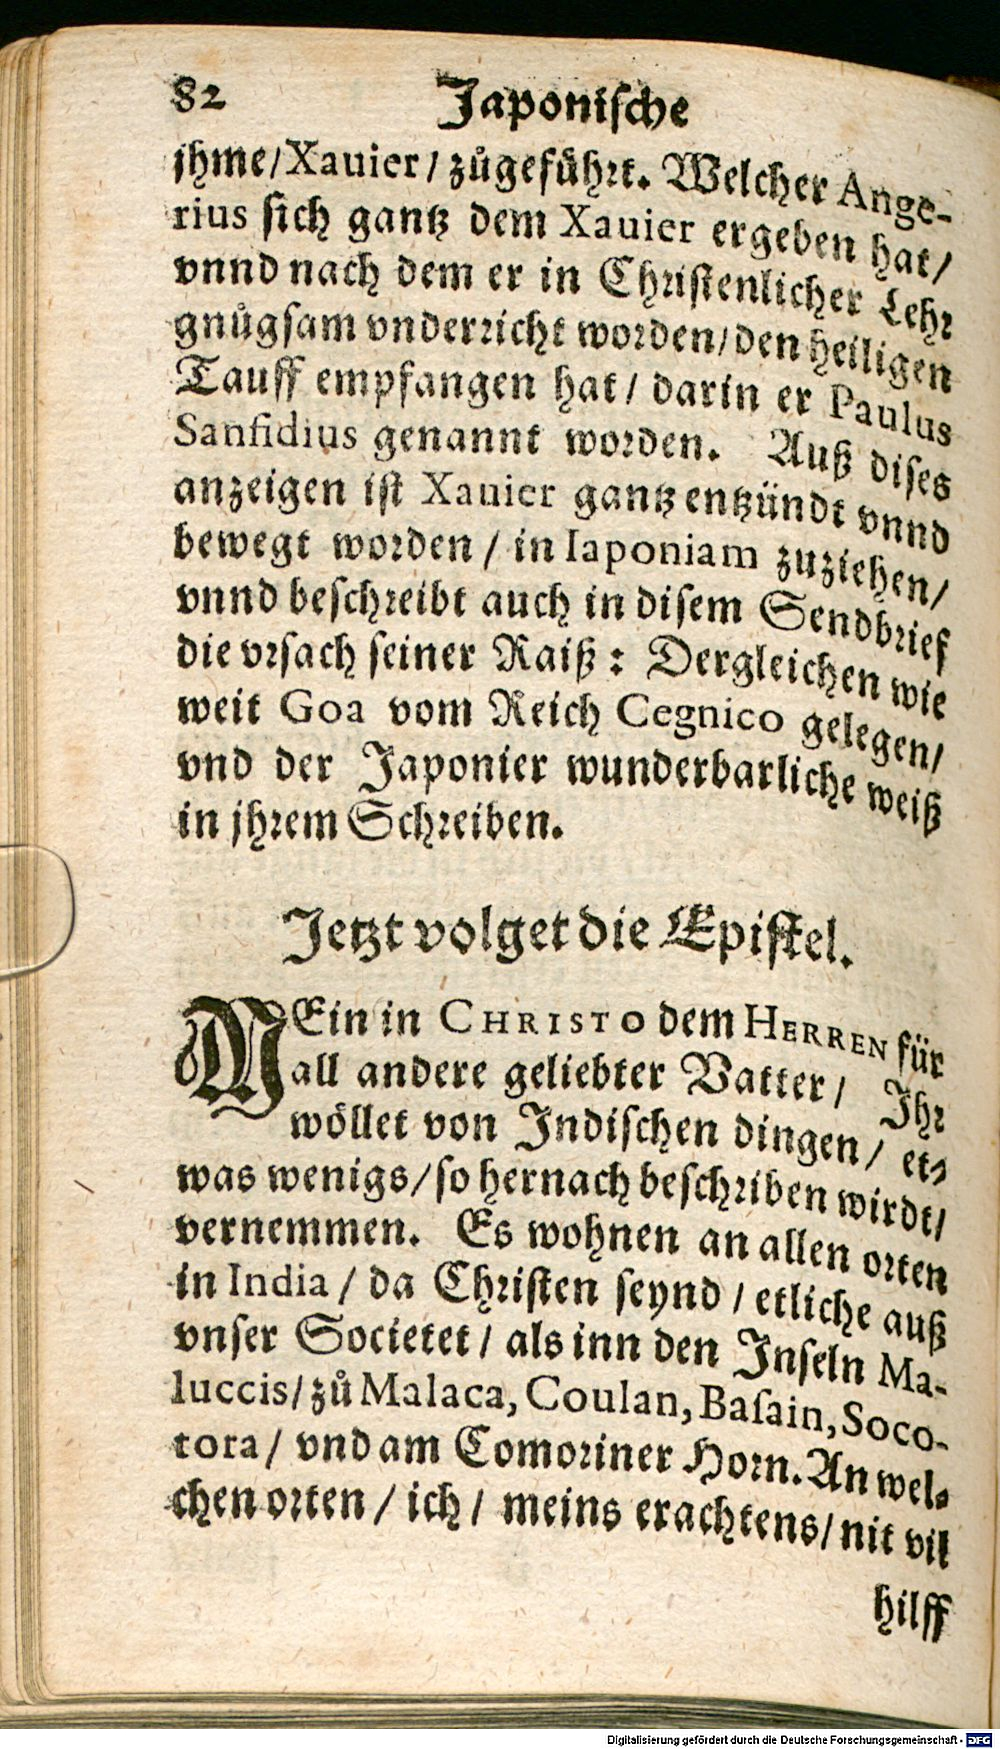 82 Japonische
jhme/Xauier/ zůgeführt. Welcher Ange-
rius sich gantz dem Xauier ergeben hat/
vnnd nach dem er in Christenlicher Lehr
gnůgsam vnderricht worden/den heiligen
Tauff empfangen hat/ darin er Paulus
Sanfidius genannt worden. Auß dises
anzeigen ist Xauier gantz entzündt vnnd
bewegt worden/ in Iaponiam zuziehen/
vnnd beschreibt auch in disem Sendbrief
die vrsach seiner Raiß: Dergleichen wie
weit Goa vom Reich Cegnico gelegen/
vnd der Japonier wunderbarliche weiß
in jhrem Schreiben.
Jetzt volget die Epistel.
MEin in CHRISTO dem HERREN für
all andere geliebter Vatter/ Jhr
wöllet von Indischen dingen/ et-
was wenigs/so hernach beschriben wirdt/
vernemmen. Es wohnen an allen orten
in India/ da Christen seynd/ etliche auß
vnser Societet/ als inn den Inseln Ma-
luccis/zů Malaca, Coulan, Basain, Soco-
tora/ vnd am Comoriner Horn. An wel-
chen orten/ ich/ meins erachtens/nit vil
hilff
Digitalisierung gefördert durch die Deutsche Forschungsgemeinschaft - DFG